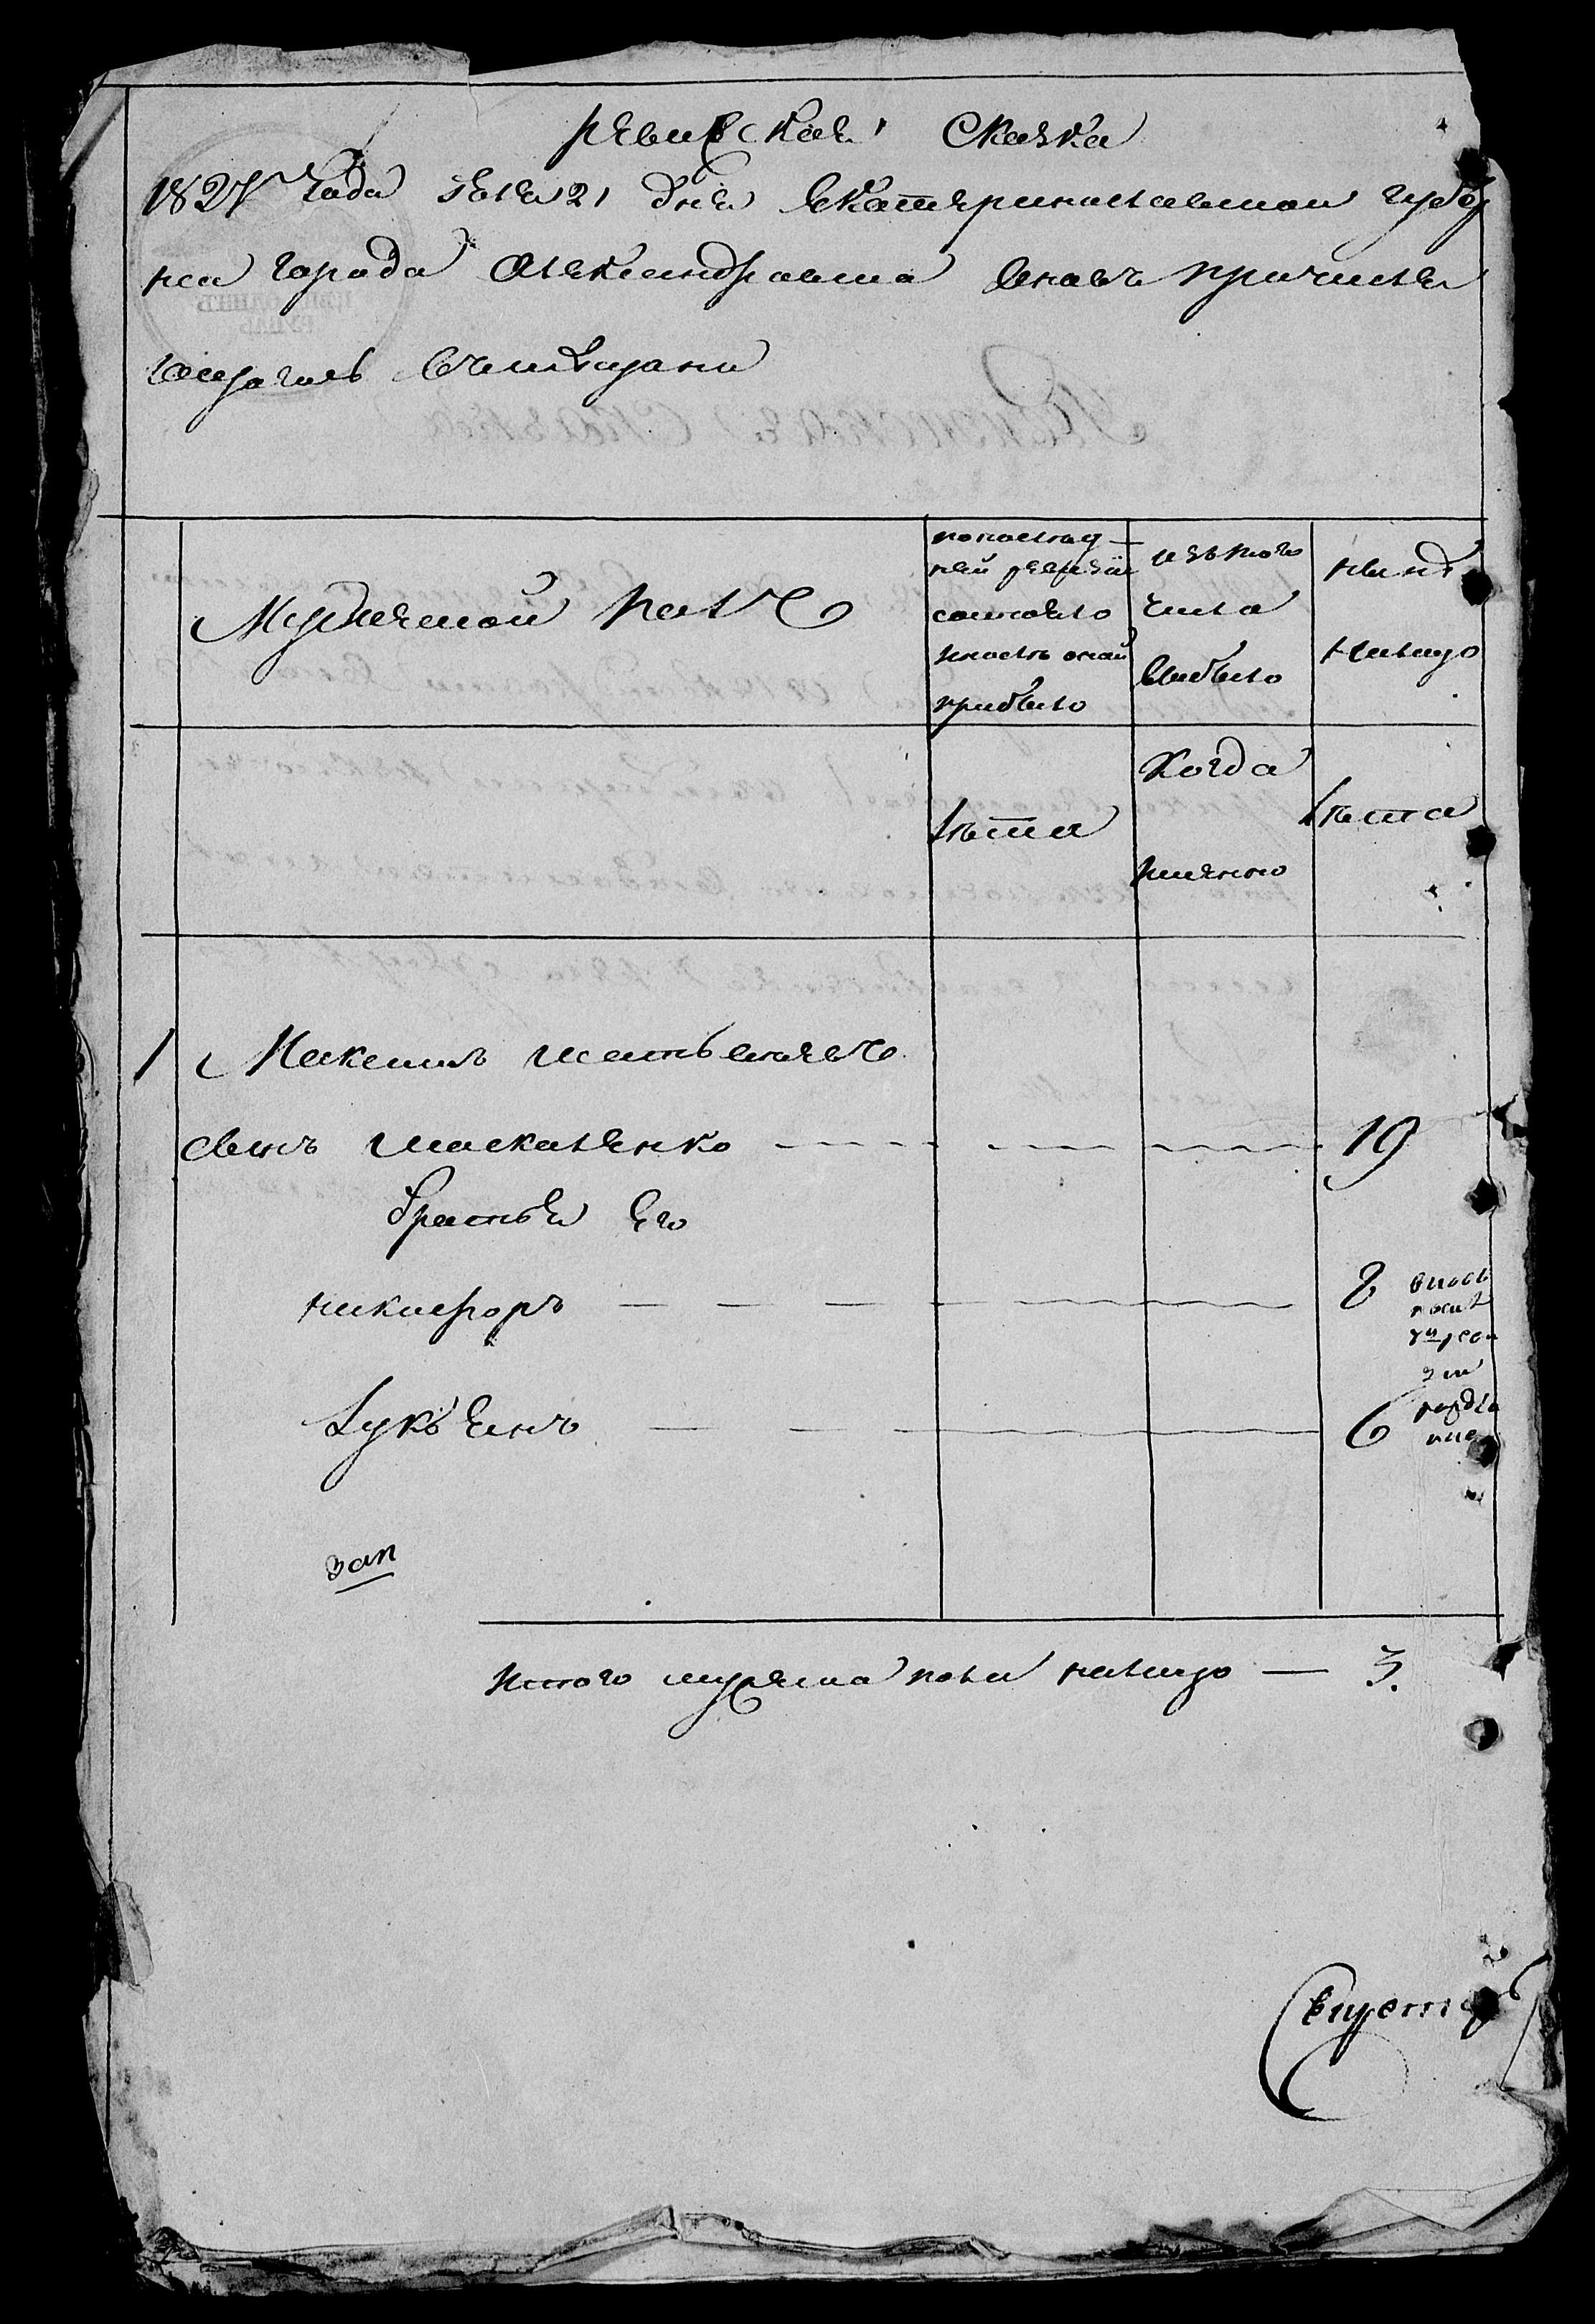 ревизская Сказка
1827 года июля 21 дня Екатеринославской губер
нии города Александровска вновь причисля
ющагось в мещани
Мужеской полъ
по последней ревизии состояло и после оной прибыло
изъ того числа выбыло
ныне налицо
лета
Когда именно
лета
1 Максимъ матвеевъ
сынъ москаленко 19
братья Его
никифоръ 8
Лукъянъ 6
зап
Итого мужеска пола налицо — 3.